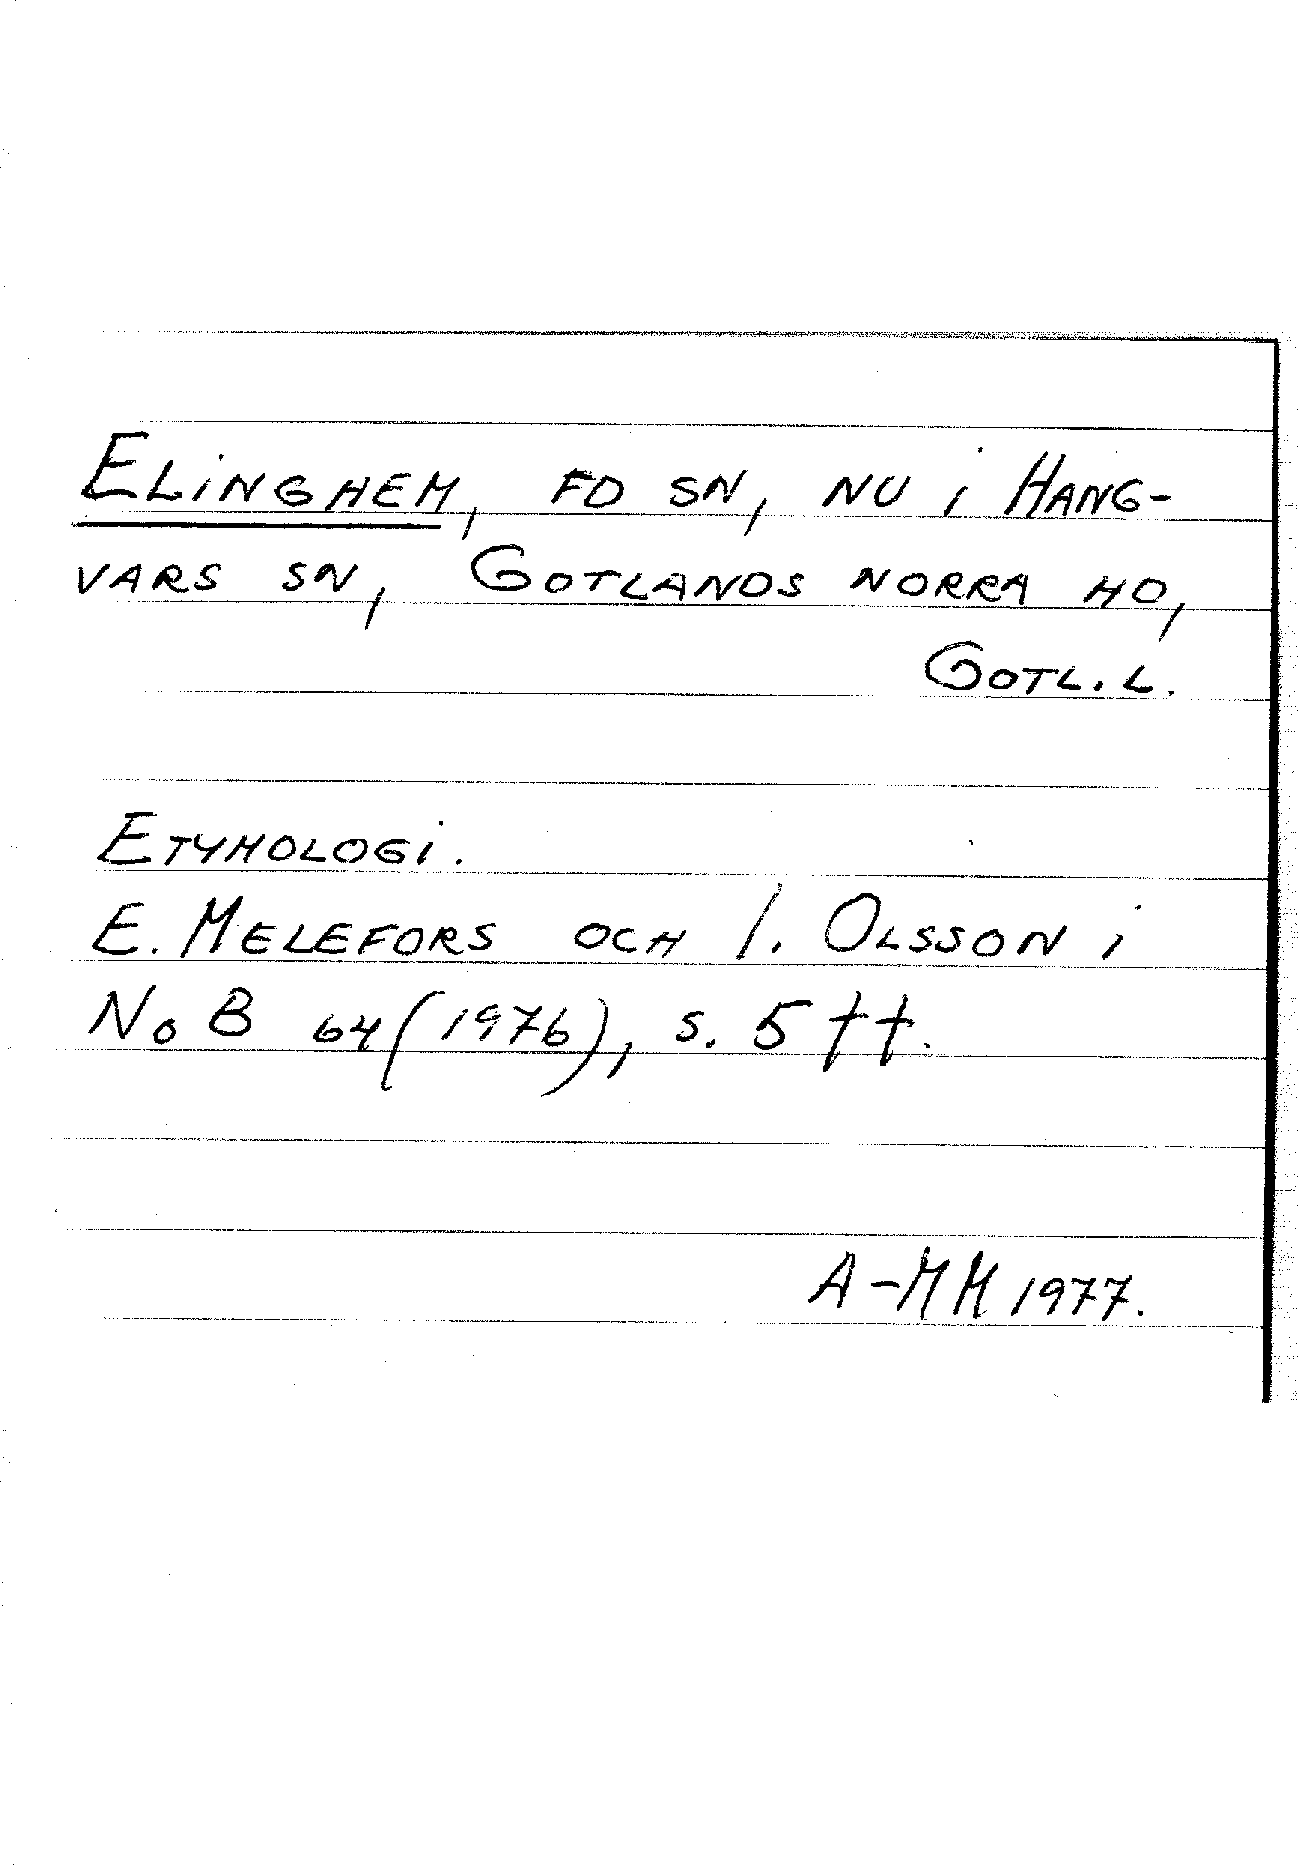 ELINGHEM, FD SN, NU I HANG-
VARS SN, GOTLANDS NORRA HD,
GOTL. L.
ETYMOLOGI.
E. MELEFORS OCH I. OLSSON I
NoB 64 (1976), s. 5 ff.
A-MM 1977.